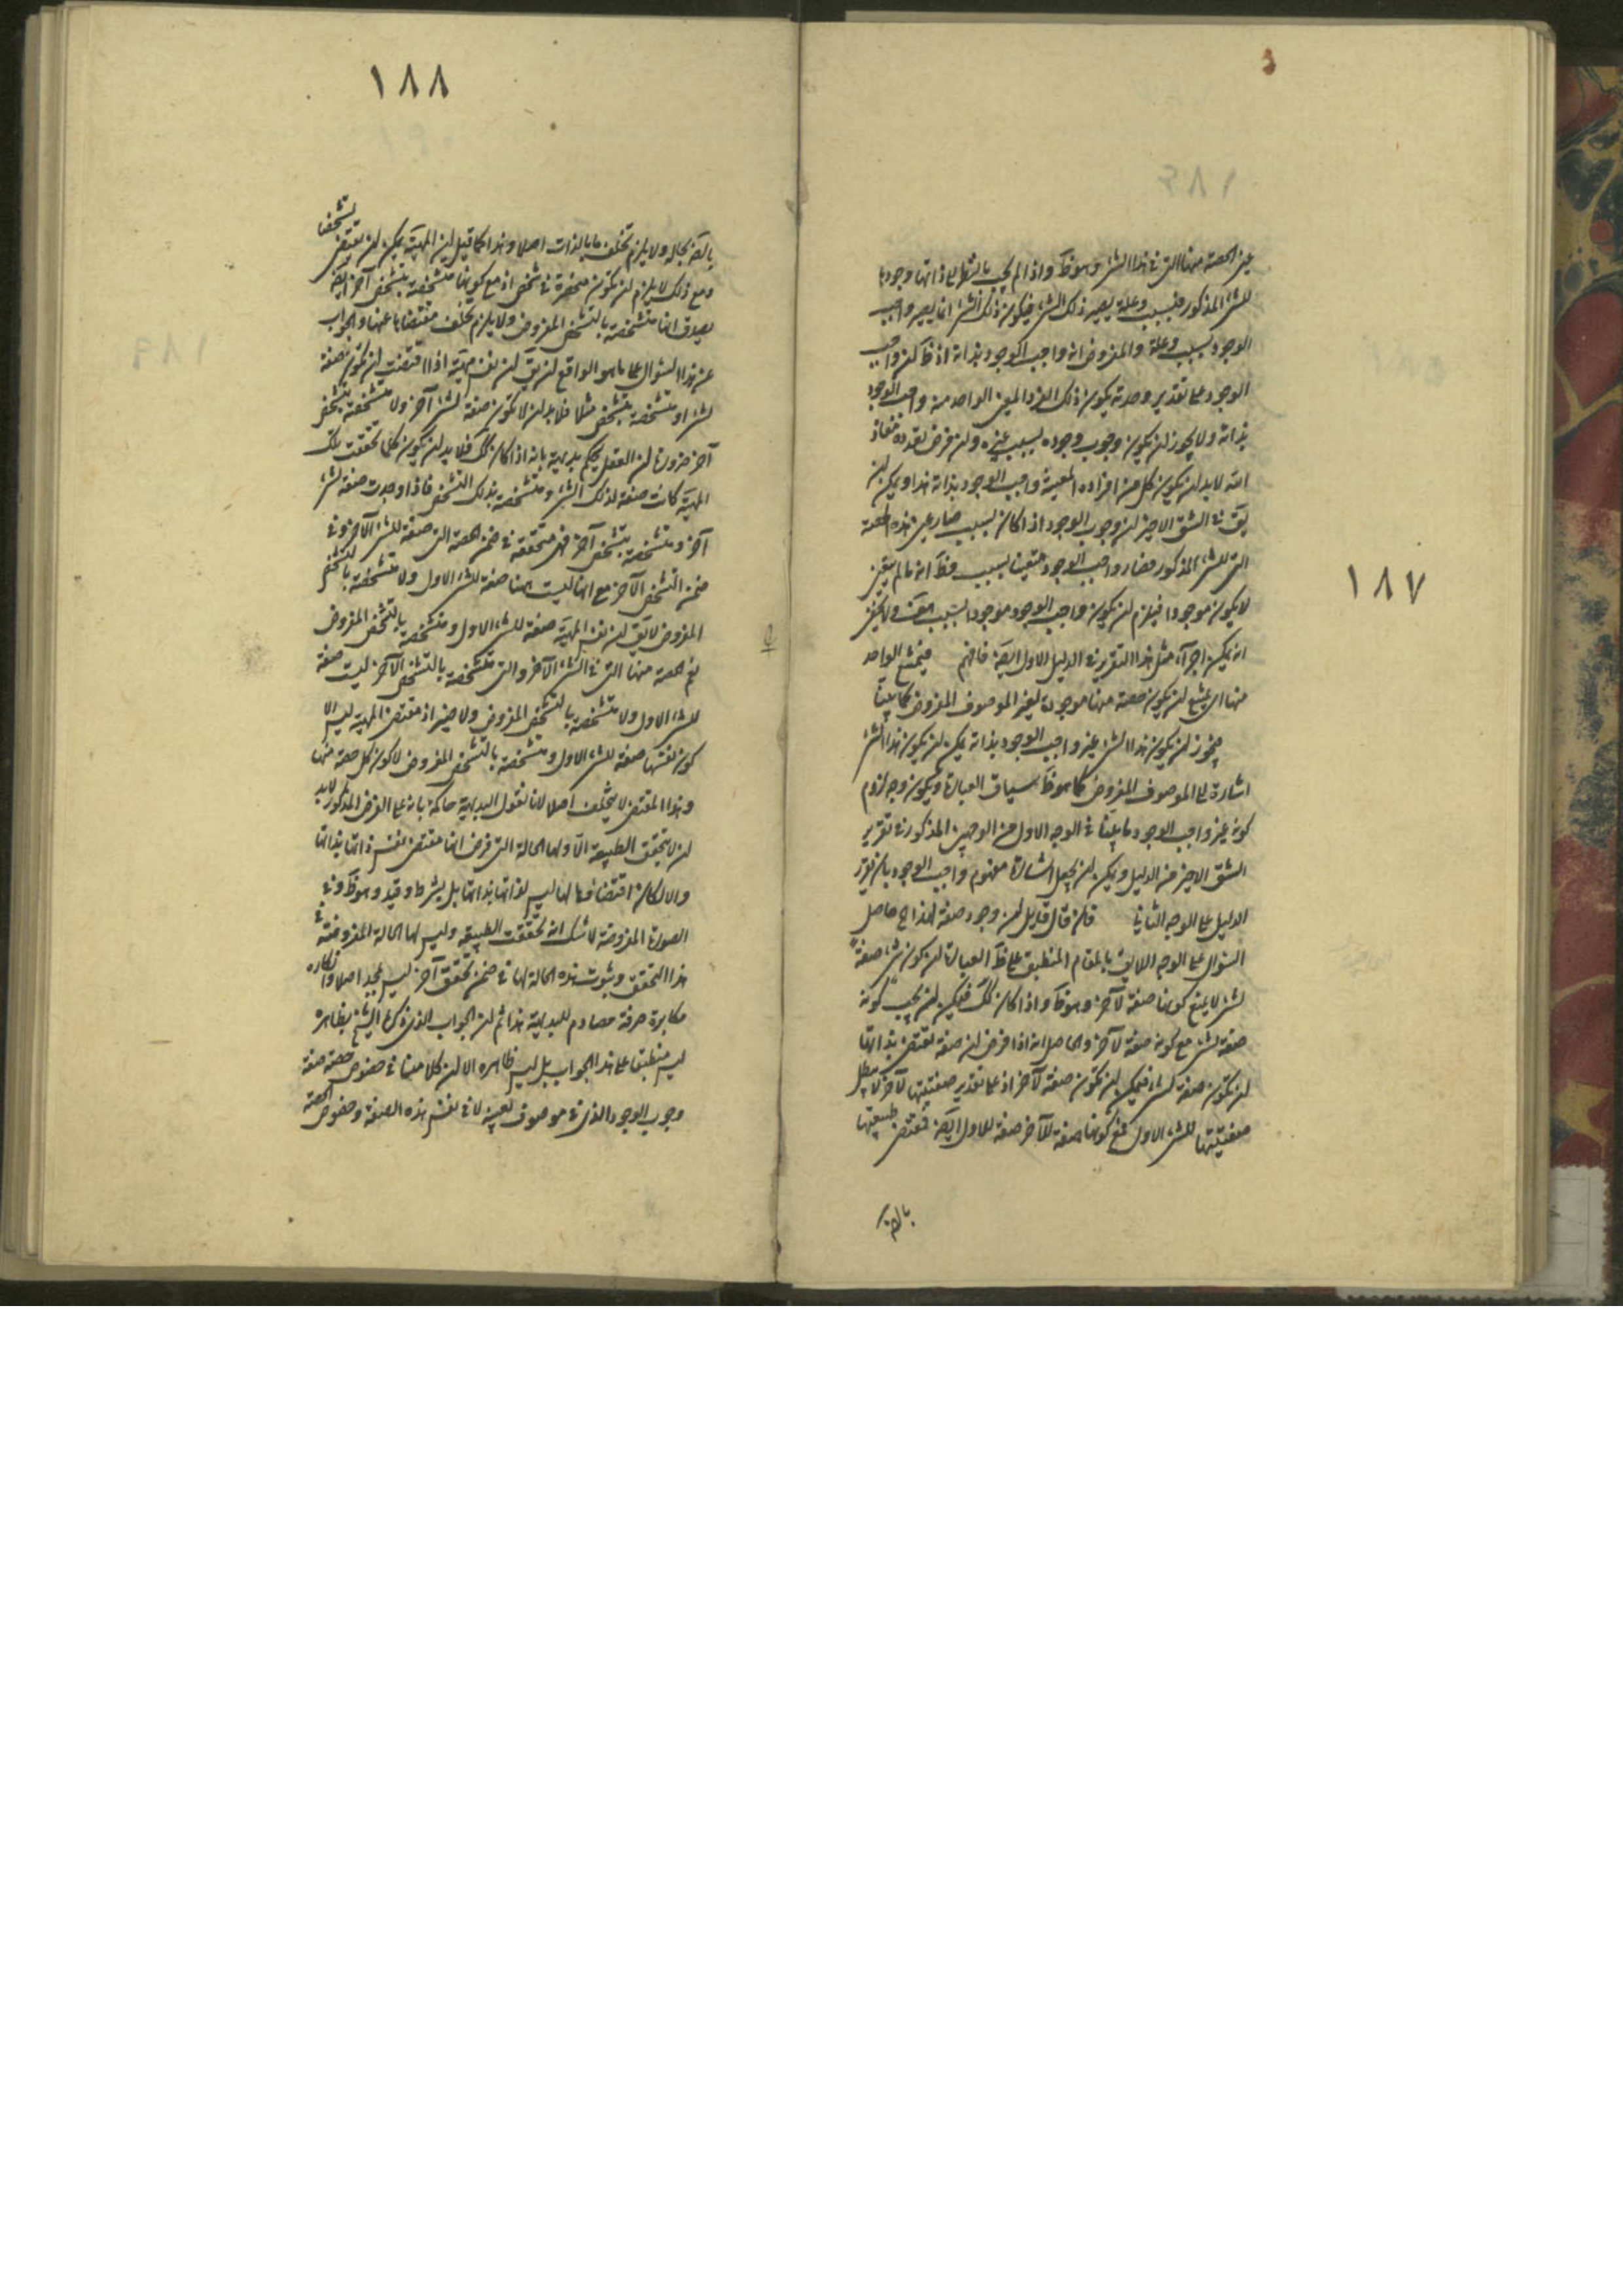 ١٨٧
غير الحصة منها التي في هذا الشئ وهو ظ واذا لم يجب بالنظر الى ذاتها وجودها
للشئ المذكور فبسبب وعلة يصير ذلك الشئ فيكون ذلك الشئ انما يصير واجب
الوجود بسبب وعلة والمفروض انه واجب الوجود بذاته اذ ظ كون واجب
الوجود على تقدير وحدته يكون ذلك الفرد المعين الواحد منه واجب الوجود
بذاته ولا يجوز ان يكون وجوب وجوده بسبب غيره وان فرض تعدده معاذ
الله لابد ان يكون كل من افراده المعينة واجب الوجود بذاته هذا ويمكن ان
يق في الشق الاخير ان وجوب الوجود اذا كان بسبب صار عين هذه الحصة
التي للشئ المذكور فصار واجب الوجود متعينا بسبب وظ انه ما لم يتعين
لا يكون موجودا فيلزم ان يكون واجب الوجود موجودا بسبب هف ولا يخفى
انه يمكن اجراء مثل هذا التقرير في الدليل الاول ايضه فافهم فيمتنع الواحد
منها اى يمتنع ان يكون حصة منها موجودة لغير الموصوف المفروض كما بينا
فيجوز ان يكون هذا الشئ غير واجب الوجود بذاته يمكن ان يكون هذا الشئ
اشارة الى الموصوف المفروض كما هو ظ سياق العبارة ويكون وجه لزوم
كونه غير واجب الوجود ما بينا في الوجه الاول من الوجهين المذكورين في تقرير
الشق الاخير من الدليل ويمكن ان يجعل اشارة مفهوم واجب الوجود بان نورد
الدليل على الوجه الثاني فان قال قايل ان وجود صفة لهذا الخ حاصل
السئوال على الوجه اللايق بالمقام المنطبق على ظ العبارة ان كون شئ صفة
لشئ لا يمنع كونها صفة لآخر وهو ظ واذا كان كك فيمكن ان يجب كونه
صفة لشئ مع كونه صفة لآخر والحاصل انه اذا فرض ان صفة تقتضى بذاتها
ان تكون صفة لشئ فيمكن ان تكون صفة لآخر اذ على تقدير صفتيتها لآخر لا يبطل
صفتيتها للشئ الاول فمع كونها صفة للآخر صفة للاول ايضه فمقتضى طبيعتها
بالضه
١٨٨
بالضه بحاله ولا يلزم تخلف ما بالذات اصلا وهذا كما قيل ان المهية يمكن ان تقتضى تشخصا
ومع ذلك لا يلزم ان تكون منحصرة في شخص اذ مع كونها متشخصة بتشخص آخر ايضه
يصدق انها متشخصة بالتشخص المفروض ولا يلزم تخلف مقتضاها عنها والجواب
عن هذا السئوال على ما هو الواقع ان يق ان نفس مهية اذا اقتضت ان تكون صفة
لشئ او متشخصة بتشخص مثلا فلابد ان لا تكون صفة لشئ آخر ولا متشخصة بتشخص
آخر ضرورة ان العقل يحكم بديهة بانه اذا كان كك فلابد ان يكون كلما تحققت تلك
المهية كانت صفة لذلك الشئ ومتشخصة بذلك التشخص فاذا وجدت صفة لشئ
آخر ومتشخصة بتشخص آخر فهى متحققة في ضمن الحصة التي صفة للشئ الآخر وفي
ضمن التشخص الآخر مع انها ليست هنا صفة للشئ الاول ولا متشخصة بالتشخص
المفروض لا يق ان نفس المهية صفة للشئ الاول ومتشخصة بالتشخص المفروض
نعم الحصة منها التي في الشئ الآخر والتي متشخصة بالتشخص الآخر ليست صفة
للشئ الاول ولا متشخصة بالتشخص المفروض ولا ضير اذ مقتضى المهية ليس الا
كون نفسها صفة للشئ الاول ومتشخصة بالتشخص المفروض لا كون كل حصة منها
وهذا المقتضى لا يتخلف اصلا لانا نقول البديهة حاكمة بانه على الفرض المذكور لابد
ان لا يتحقق الطبيعة الا ولها الحالة التي فرض انها مقتضى نفس ذاتها بذاتها
والا لكان اقتضاؤها لها ليس لذاتها بذاتها بل بشرط وقيد وهو ظ وفي
الصورة المفروضة لا شك انه تحققت الطبيعة وليس لها الحالة المفروضة في
هذا التحقق وثبوت هذه الحالة لها في ضمن تحقق آخر ليس بمجد اصلا وانكاره
مكابرة صرفة مصادم للبديهة هذا ثم ان الجواب الذي ذكره الشيخ بظاهره
ليس منطبق على هذا الجواب بل ليس ظاهره الا ان كلامنا في خصوص حصة صفة
وجوب الوجود الذي في موصوف بعينه لا في نفس هذه الصفة وخصوص الحصة